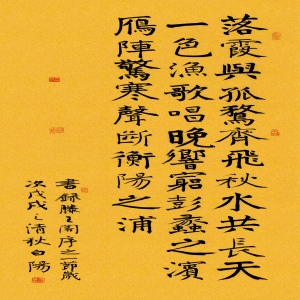 落霞與孤鶩齊飛秋水共長天
一色漁歌唱晚響窮彭蠡之濱
鴈陣驚寒聲斷衡陽之浦
書録滕王閣序之一節歲
次戊戌之清秋白陽